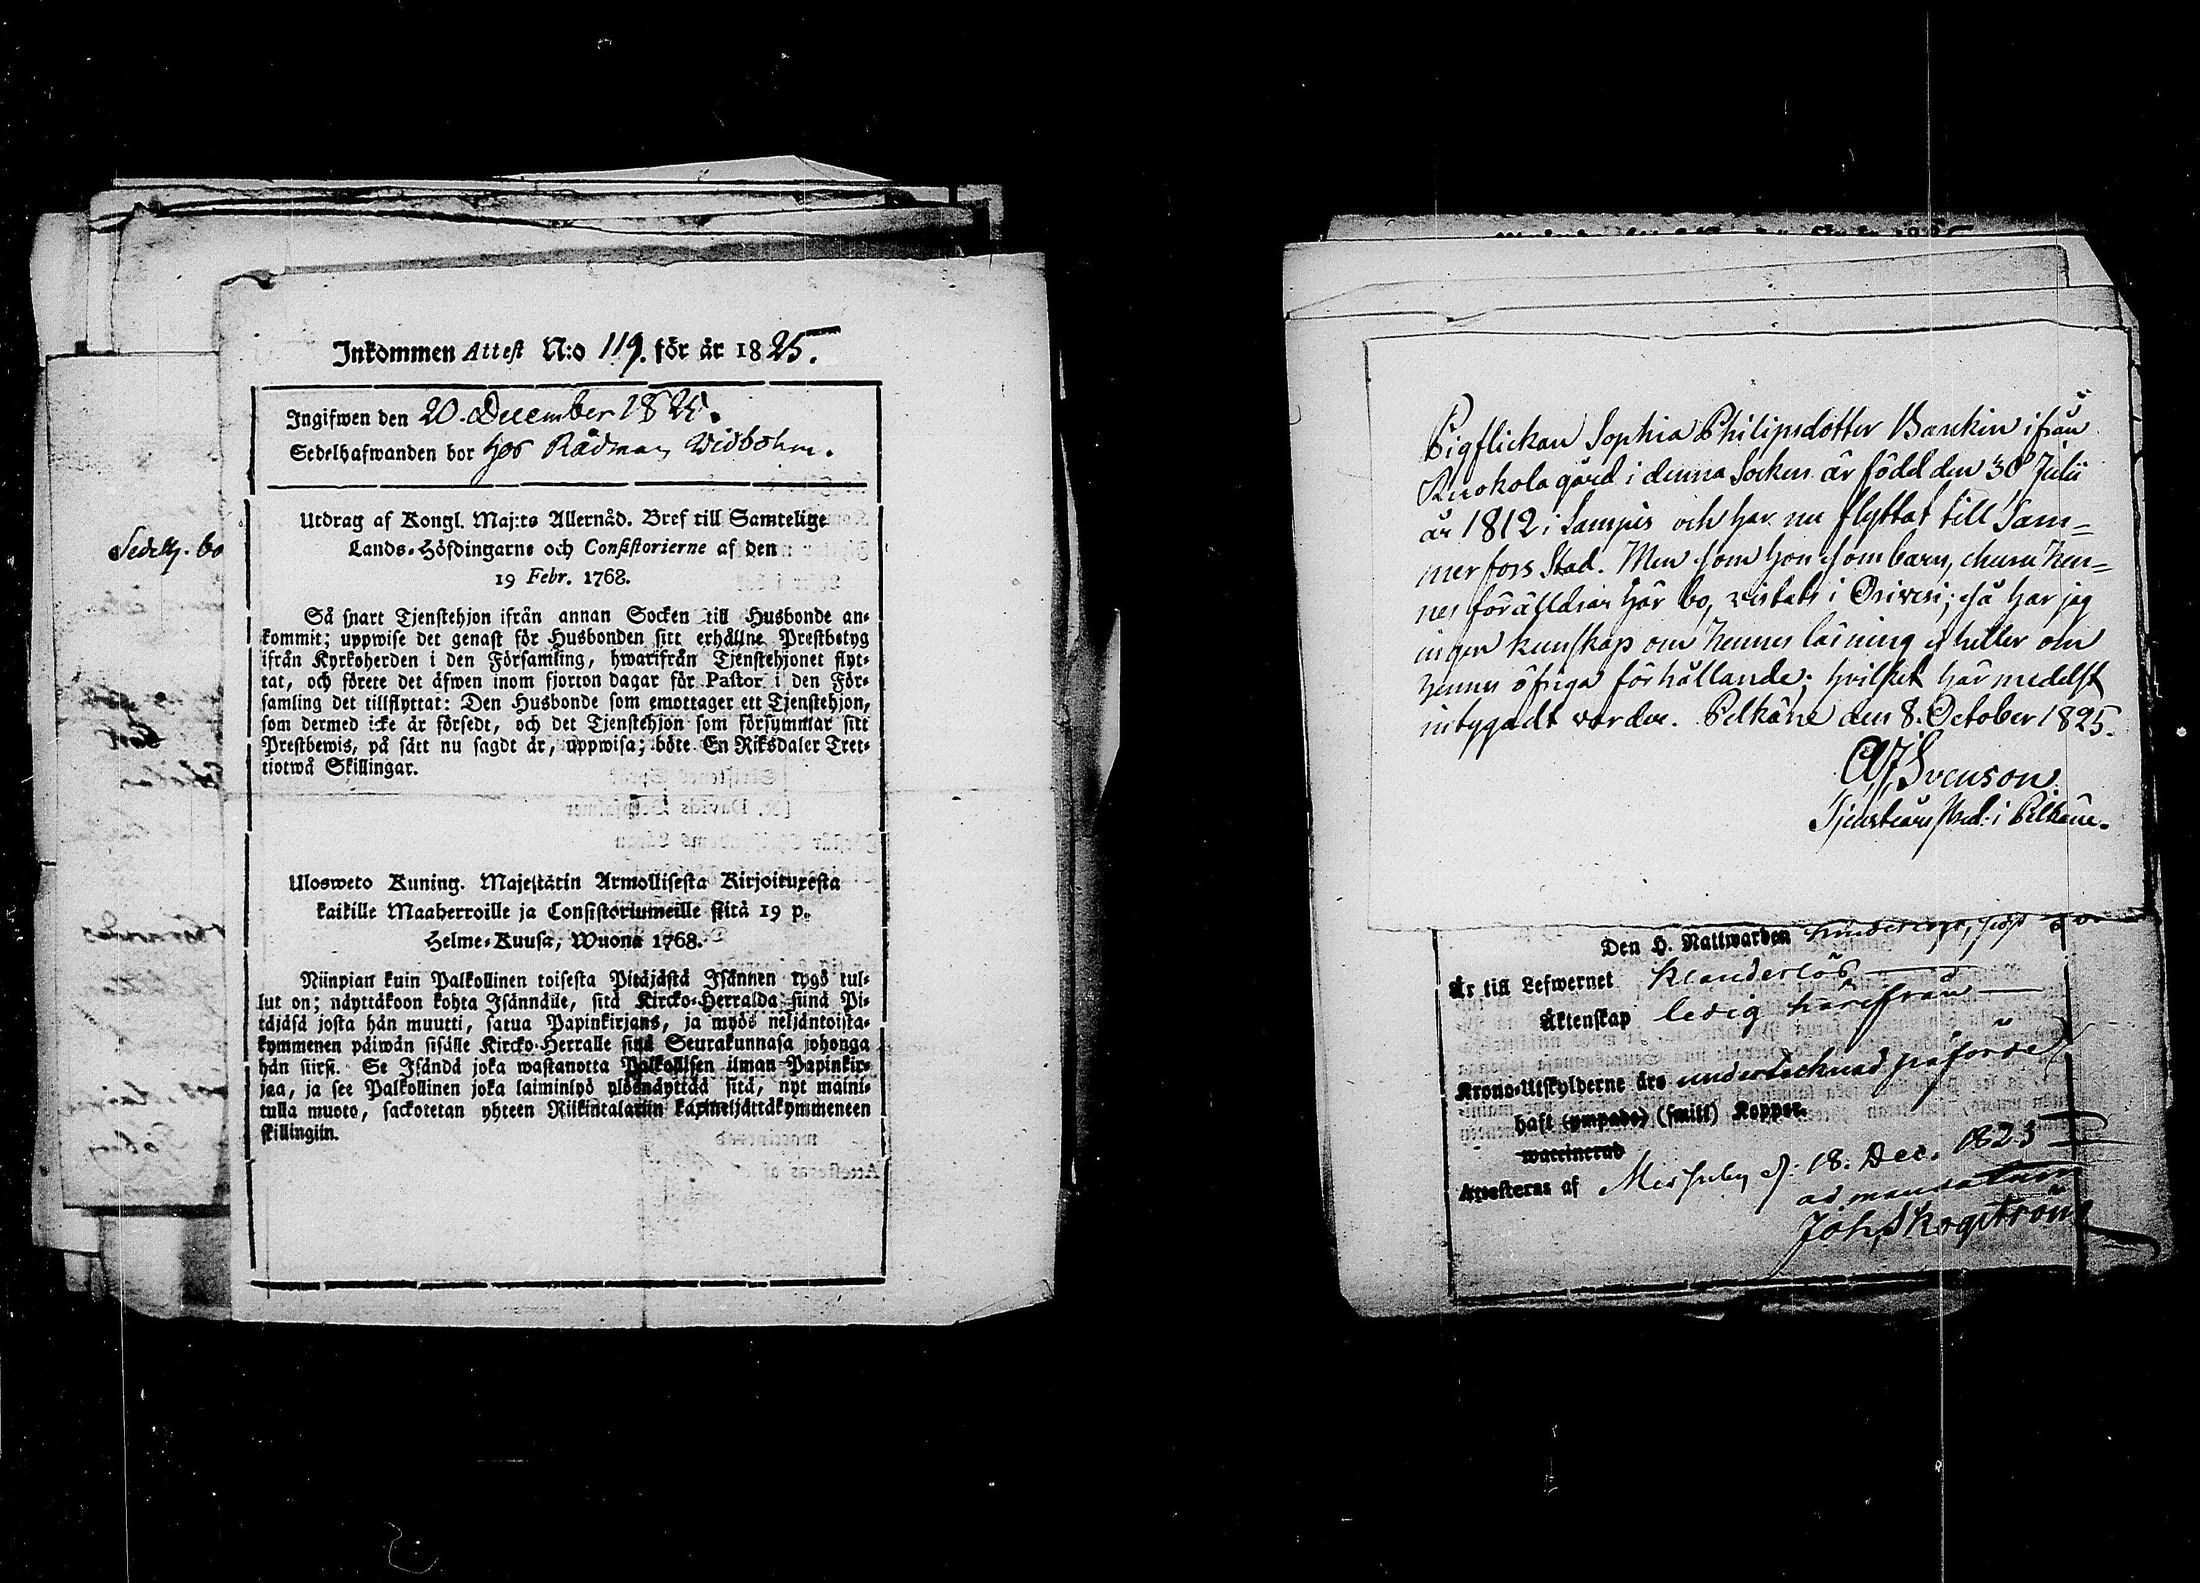 Inkommen Attest N:o 119. för år 1825.
Ingifwen den 20. December 1825.
Sedelhafwanden bor hos Rådman Widbohm.
Utdrag af Kongl. Maj:ts Allernåd. Bref till Samtelige
Lands-Höfdingarne och Consistorierne af den
19 Febr. 1768.
Så snart Tjenstehjon ifrån annan Socken till Husbonde an-
kommit; uppwise det genast för Husbonden sitt erhållne Prestbetyg
ifrån Kyrkoherden i den Församling, hwarifrån Tjenstehjonet flyt-
tat, och förete det äfwen inom fjorton dagar för Pastor i den För-
samling det tillflyttat: Den Husbonde som emottager ett Tjenstehjon,
som dermed icke är försedt, och det Tjenstehjon som försummar sitt
Prestbewis, på sätt nu sagdt är, uppwisa; böte En Riksdaler Tret-
tiotwå Skillingar.
Ulosweto Kuning. Majestätin Armollisesta Kirjoituxesta
kaikille Maaherroille ja Consistoriumeille siitä 19 p.
Helme-Kuusa, Wuona 1768.
Niinpian kuin Palkollinen toisesta Pitäjästä Isännen tygö tul-
lut on; näyttäkoon kohta Isännälle, sitä Kircko-Herralda siinä Pi-
täjäsä josta hän muutti, saatua Papinkirjans, ja myös neljäntoista-
kymmenen päiwän sisälle Kircko-Herralle siinä Seurakunnasa johonga
hän siirsi. Se Isändä joka wastanotta Palkollisen ilman Papinkir-
jaa, ja see Palkollinen joka laiminlyö ylösnäyttää sitä, nyt maini-
tulla muoto, sackotetan yhteen Riikintalariin kaxineljättäkymmeneen
skillingiin.
Sedelh. bo
Pigflickan Sophia Philipsdotter ifrån
Ruokola gård i denna Socken är född den 30 Julii
år 1812 i Lampis och har nu flyttat till Tam-
merfors Stad. Men som hon som barn, churu hen-
nes föräldrar här bo, vistats i Orivesi; så har jag
ingen kunskap om hennes läsning ej heller om
hennes öfriga förhållande; hvilket här medelst
intygadt varder. Pelkäne den 8. October 1825.
Svenson
i Pelkäne.
Den H. Nattwarden
Är till Lefwernet klanderlös
Äktenskap ledig härefrån
Krono-Utskylderne äro undertecknad påförde
haft (ympade) (smitt) Koppor.
waccinerad
Attesteras af Messuby d. 18. Dec. 1825
ad mandatum
Joh. Skogström